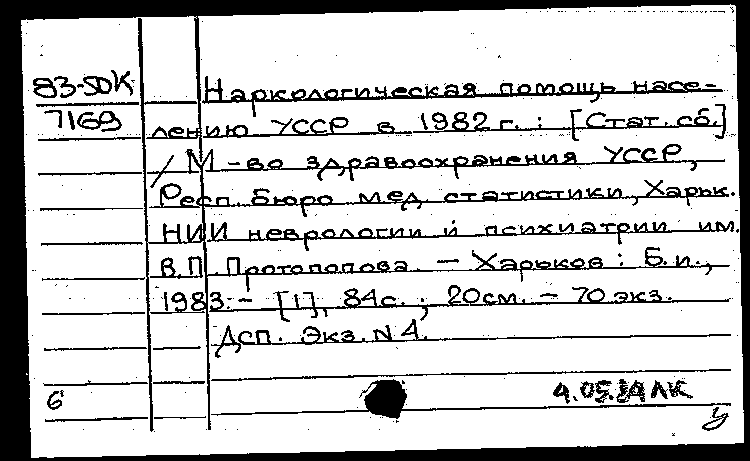 83-50К
7169
Наркологическая помощь насе-
лению УССР в 1982 г. : [Стат. сб.]
/ М-во здравоохранения УССР,
Респ. бюро мед. статистики, Харьк.
НИИ неврологии и психиатрии им.
В.П. Протопопова. – Харьков : Б.и.,
1983. – [1], 84с. ; 20см. – 70 экз.
Дсп. Экз. N 4.
6
4.05.84 ЛК
у